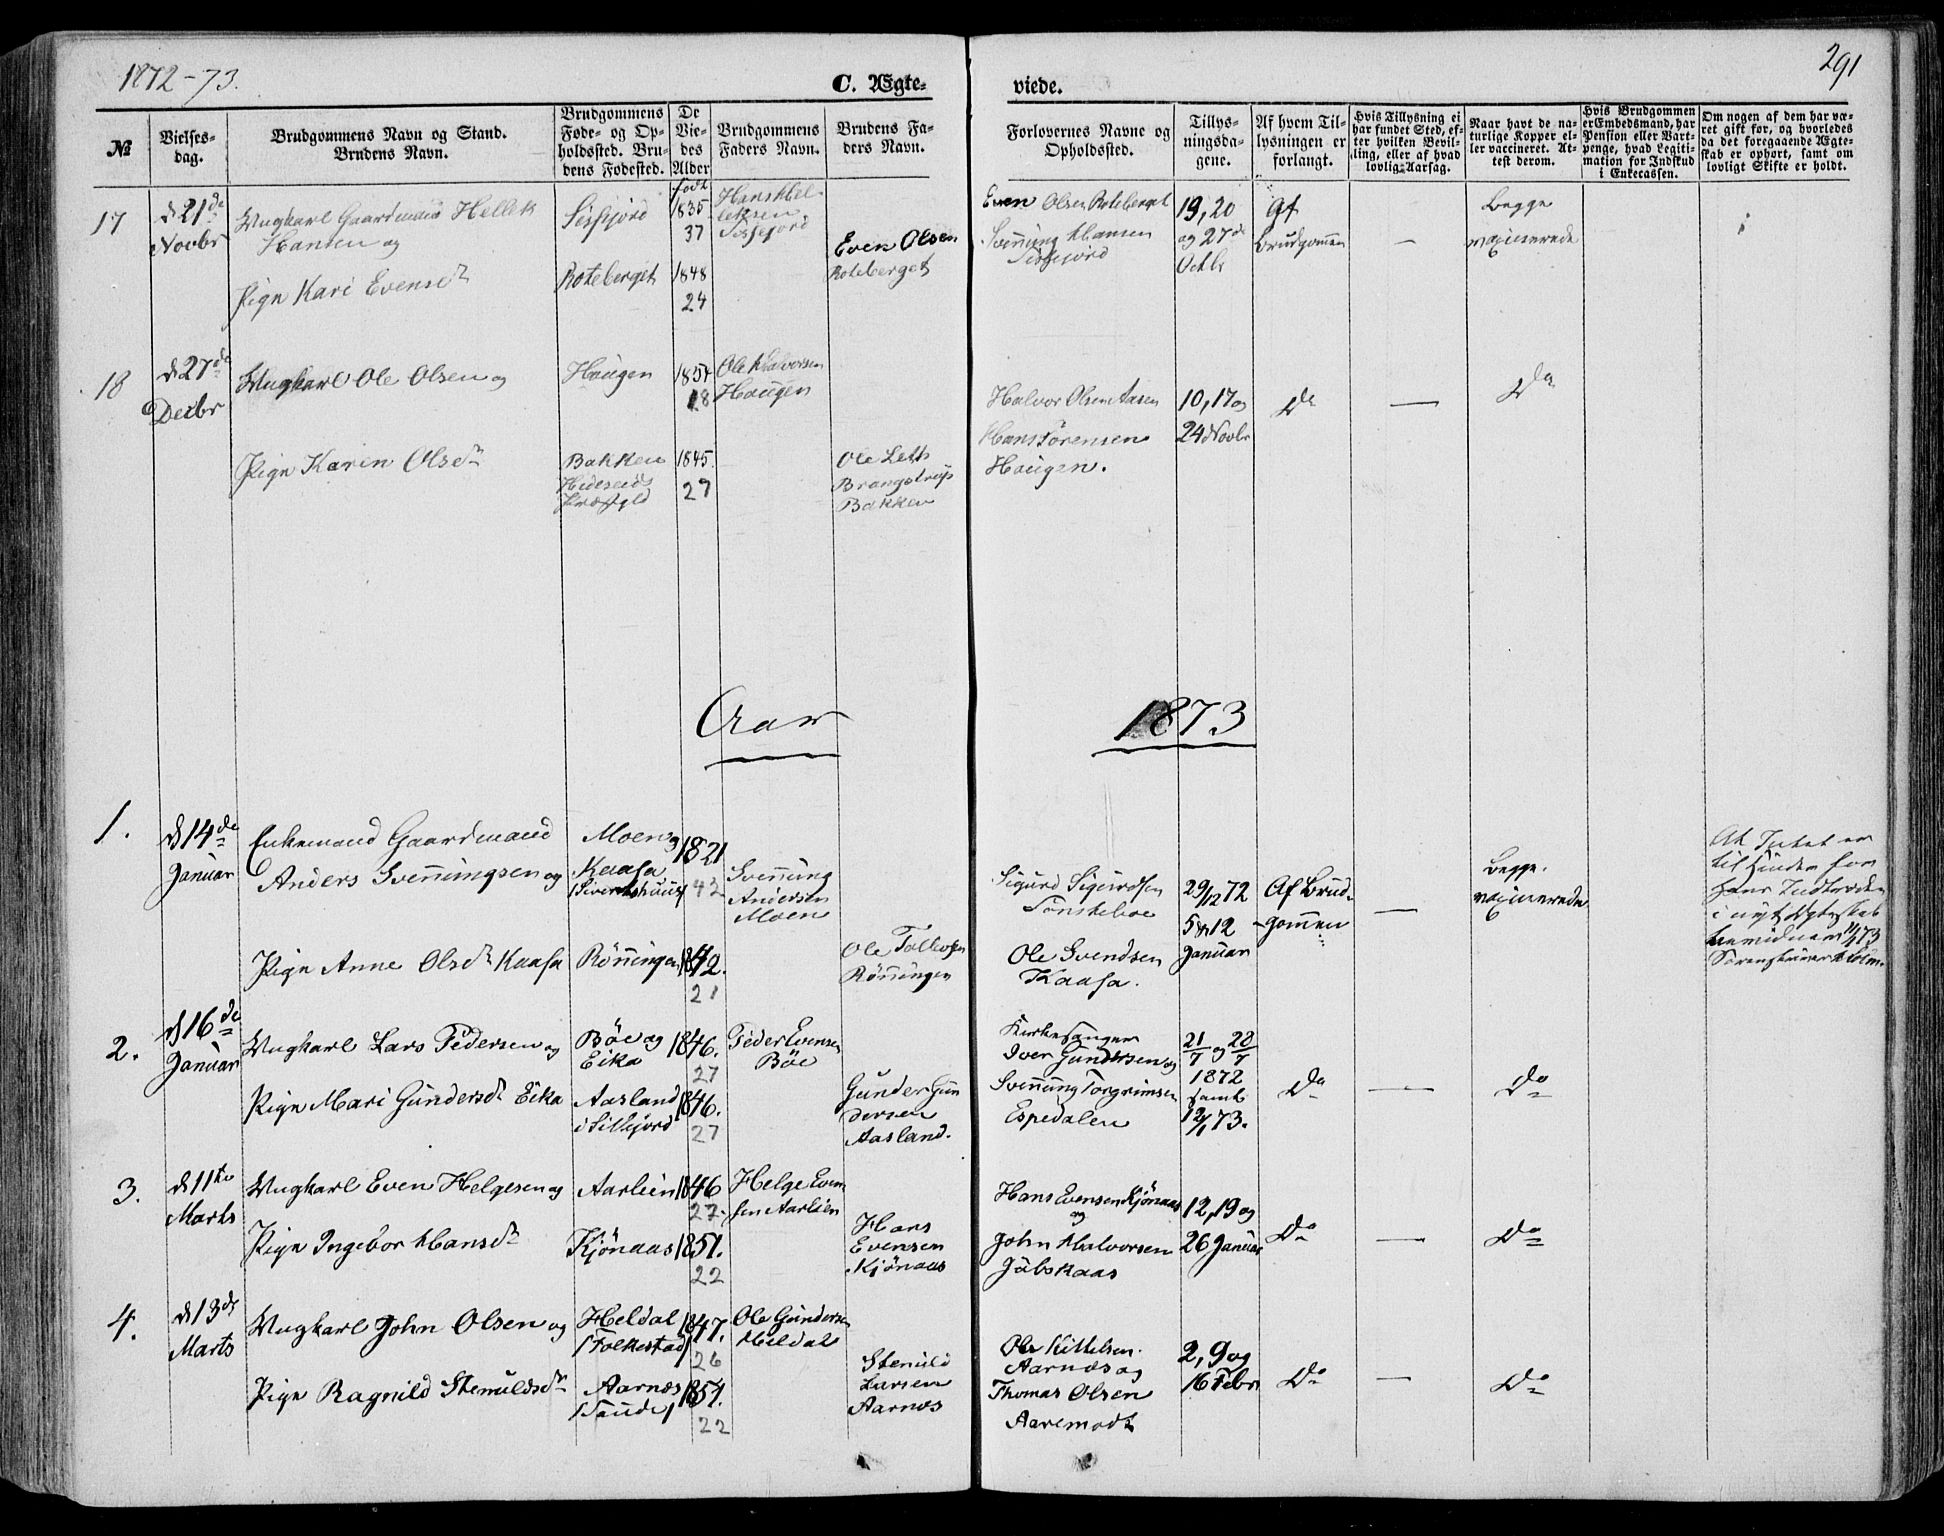 1872-73.
C. Ægte-
viede.
291
№
Vielses-
dag.
Brudgommens Navn og Stand.
Brudens Navn.
Brudgommens
Føde- og Op-
holdssted. Bru-
dens Fødested.
De
Vie-
des
Alder
Brudgommens
Faders Navn.
Brudens Fa-
ders Navn.
Forlovernes Navne og
Opholdssted.
Tillys-
ningsda-
gene.
Af hvem Til-
lysningen er
forlangt.
Hvis Tillysning ei
har fundet Sted, ef-
ter hvilken Bevil-
ling, eller af hvad
lovlig Aarsag.
Naar havt de na-
turlige Kopper el-
ler vaccineret. At-
test derom.
Hvis Brudgommen
er Embedsmand, har
Pension eller Vart-
penge, hvad Legiti-
mation for Indskud
i Enkecassen.
Om nogen af dem har væ-
ret gift før, og hvorledes
da det foregaaende Ægte-
skab er ophørt, samt om
lovligt Skifte er holdt.
17
d 21de
Novbr
Ungkarl Gaardmand Hellek
Hansen og
Pige Kari Evensdr
Roteberget
født
1835
37
1848
24
Hans Hel-
leksen
Even Olsen
Roteberget
Even Olsen Roteberget
Svenning Hansen
19, 20
og 27de
Octbr
Af
Brudgommen
—
Begge
vaxinerede
18
d 27de
Decbr
Ungkarl Ole Olsen og
Pige Karen Olsdr
Haugen
Bakken
1854
18
1845.
27
Ole Halvorsen
Haugen
Ole Leth
Brangstrup
Bakken
Halvor Olsen Aasen
Hans Sørensen
Haugen.
10, 17 og
24 Novbr
Do
—
Do
Aar
1873
1.
d 14de
Januar
Enkemand Gaardmand
Anders Svenningsen og
Pige Anne Olsdr Kaasa
Moen og
Kaasa
Rönningen
1821
42
1842.
21
Svenning
Andersen
Moen
Ole Tollefsen
Rönningen
Sigurd Sigurdsen
Ole Svendsen
Kaasa.
29/12 72
5 & 12
Januar
Af Brud-
gommen
—
Begge.
vaxinerede
At Intet er
til Hinder for
Hans Indtræden
i nyt Ægteskab
2.
d 16de
Januar
Ungkarl Lars Pedersen og
Pige Mari Gundersdr Eika
Böe og
Eika
Aasland
i Sillejord
1846.
27
1846.
27
Peder Evensen
Böe
Gunder Gun
dersen
Aasland.
Kirkesanger
Iver Gundersen og
Svenning Torgrimsen
Espedalen
21/7 og 28/7
1872
samt
12/1 73.
Do
—
Do
3.
d 11te
Marts
Ungkarl Even Helgesen og
Pige Ingebor Hansdr
Aarlien
Kjönaas
1846
27.
1851.
22
Helge Even
sen Aarlien
Hans
Evensen
Kjönaas
Hans Evensen Kjönaas
og
John Halvorsen
Jübskaas
12, 19 og
26 Januar
Do
—
Do
4.
d 13de
Marts
Ungkarl John Olsen og
Pige Ragnild Stenuldsdr
Heldal
/Folkestad/
Aarnes
/Saude/
1847.
26
1851.
22
Ole Gundersen
Heldal
Stenuld
Larsen
Aarnes
Ole Kittelsen
Aarnes og
Thomas Olsen
Aaremodt
2, 9 og
16 Febr
Do
—
Do